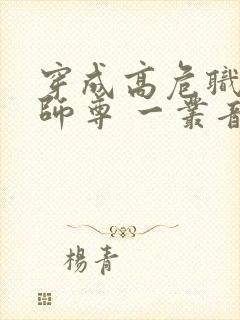 穿成高危職
師尊 一叢音
楊青